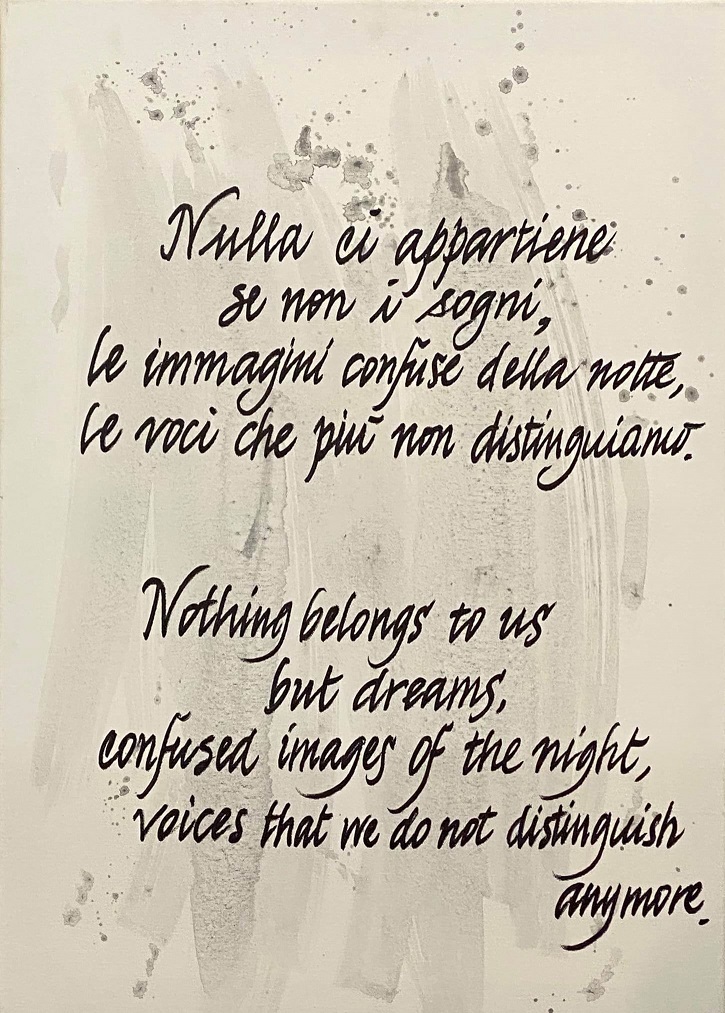 Nulla ci appartiene
se non i sogni,
le immagini confuse della notte,
le voci che più non distinguiamo.
Nothing belongs to us
but dreams,
confused images of the night,
voices that we do not distinguish
anymore.